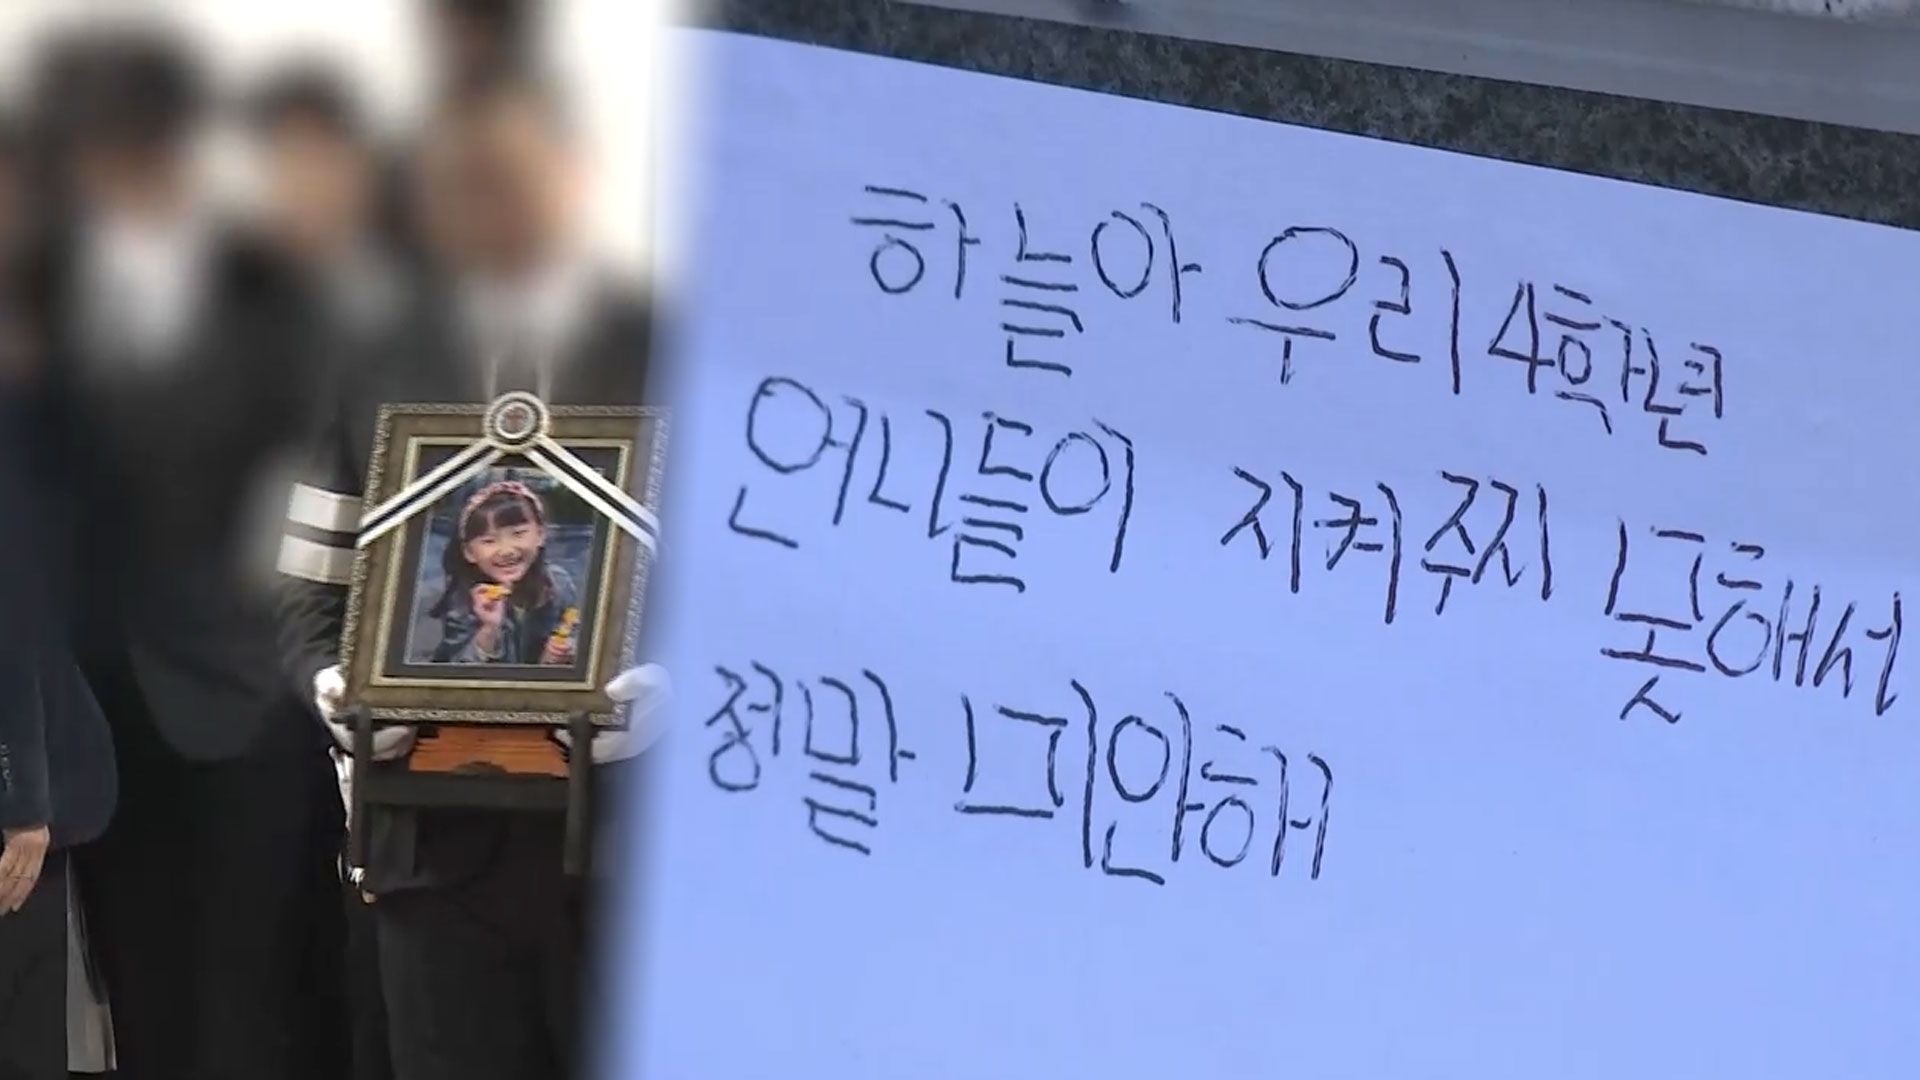 하늘아 우리 4학년
언니들이 지켜주지 못해서
정말 미안해